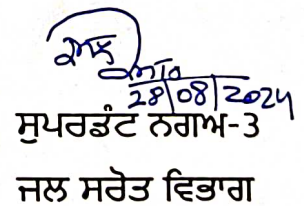 28/08/2024
ਸੁਪਰਡੰਟ ਨਗਅ-3
ਜਲ ਸਰੋਤ ਵਿਭਾਗ